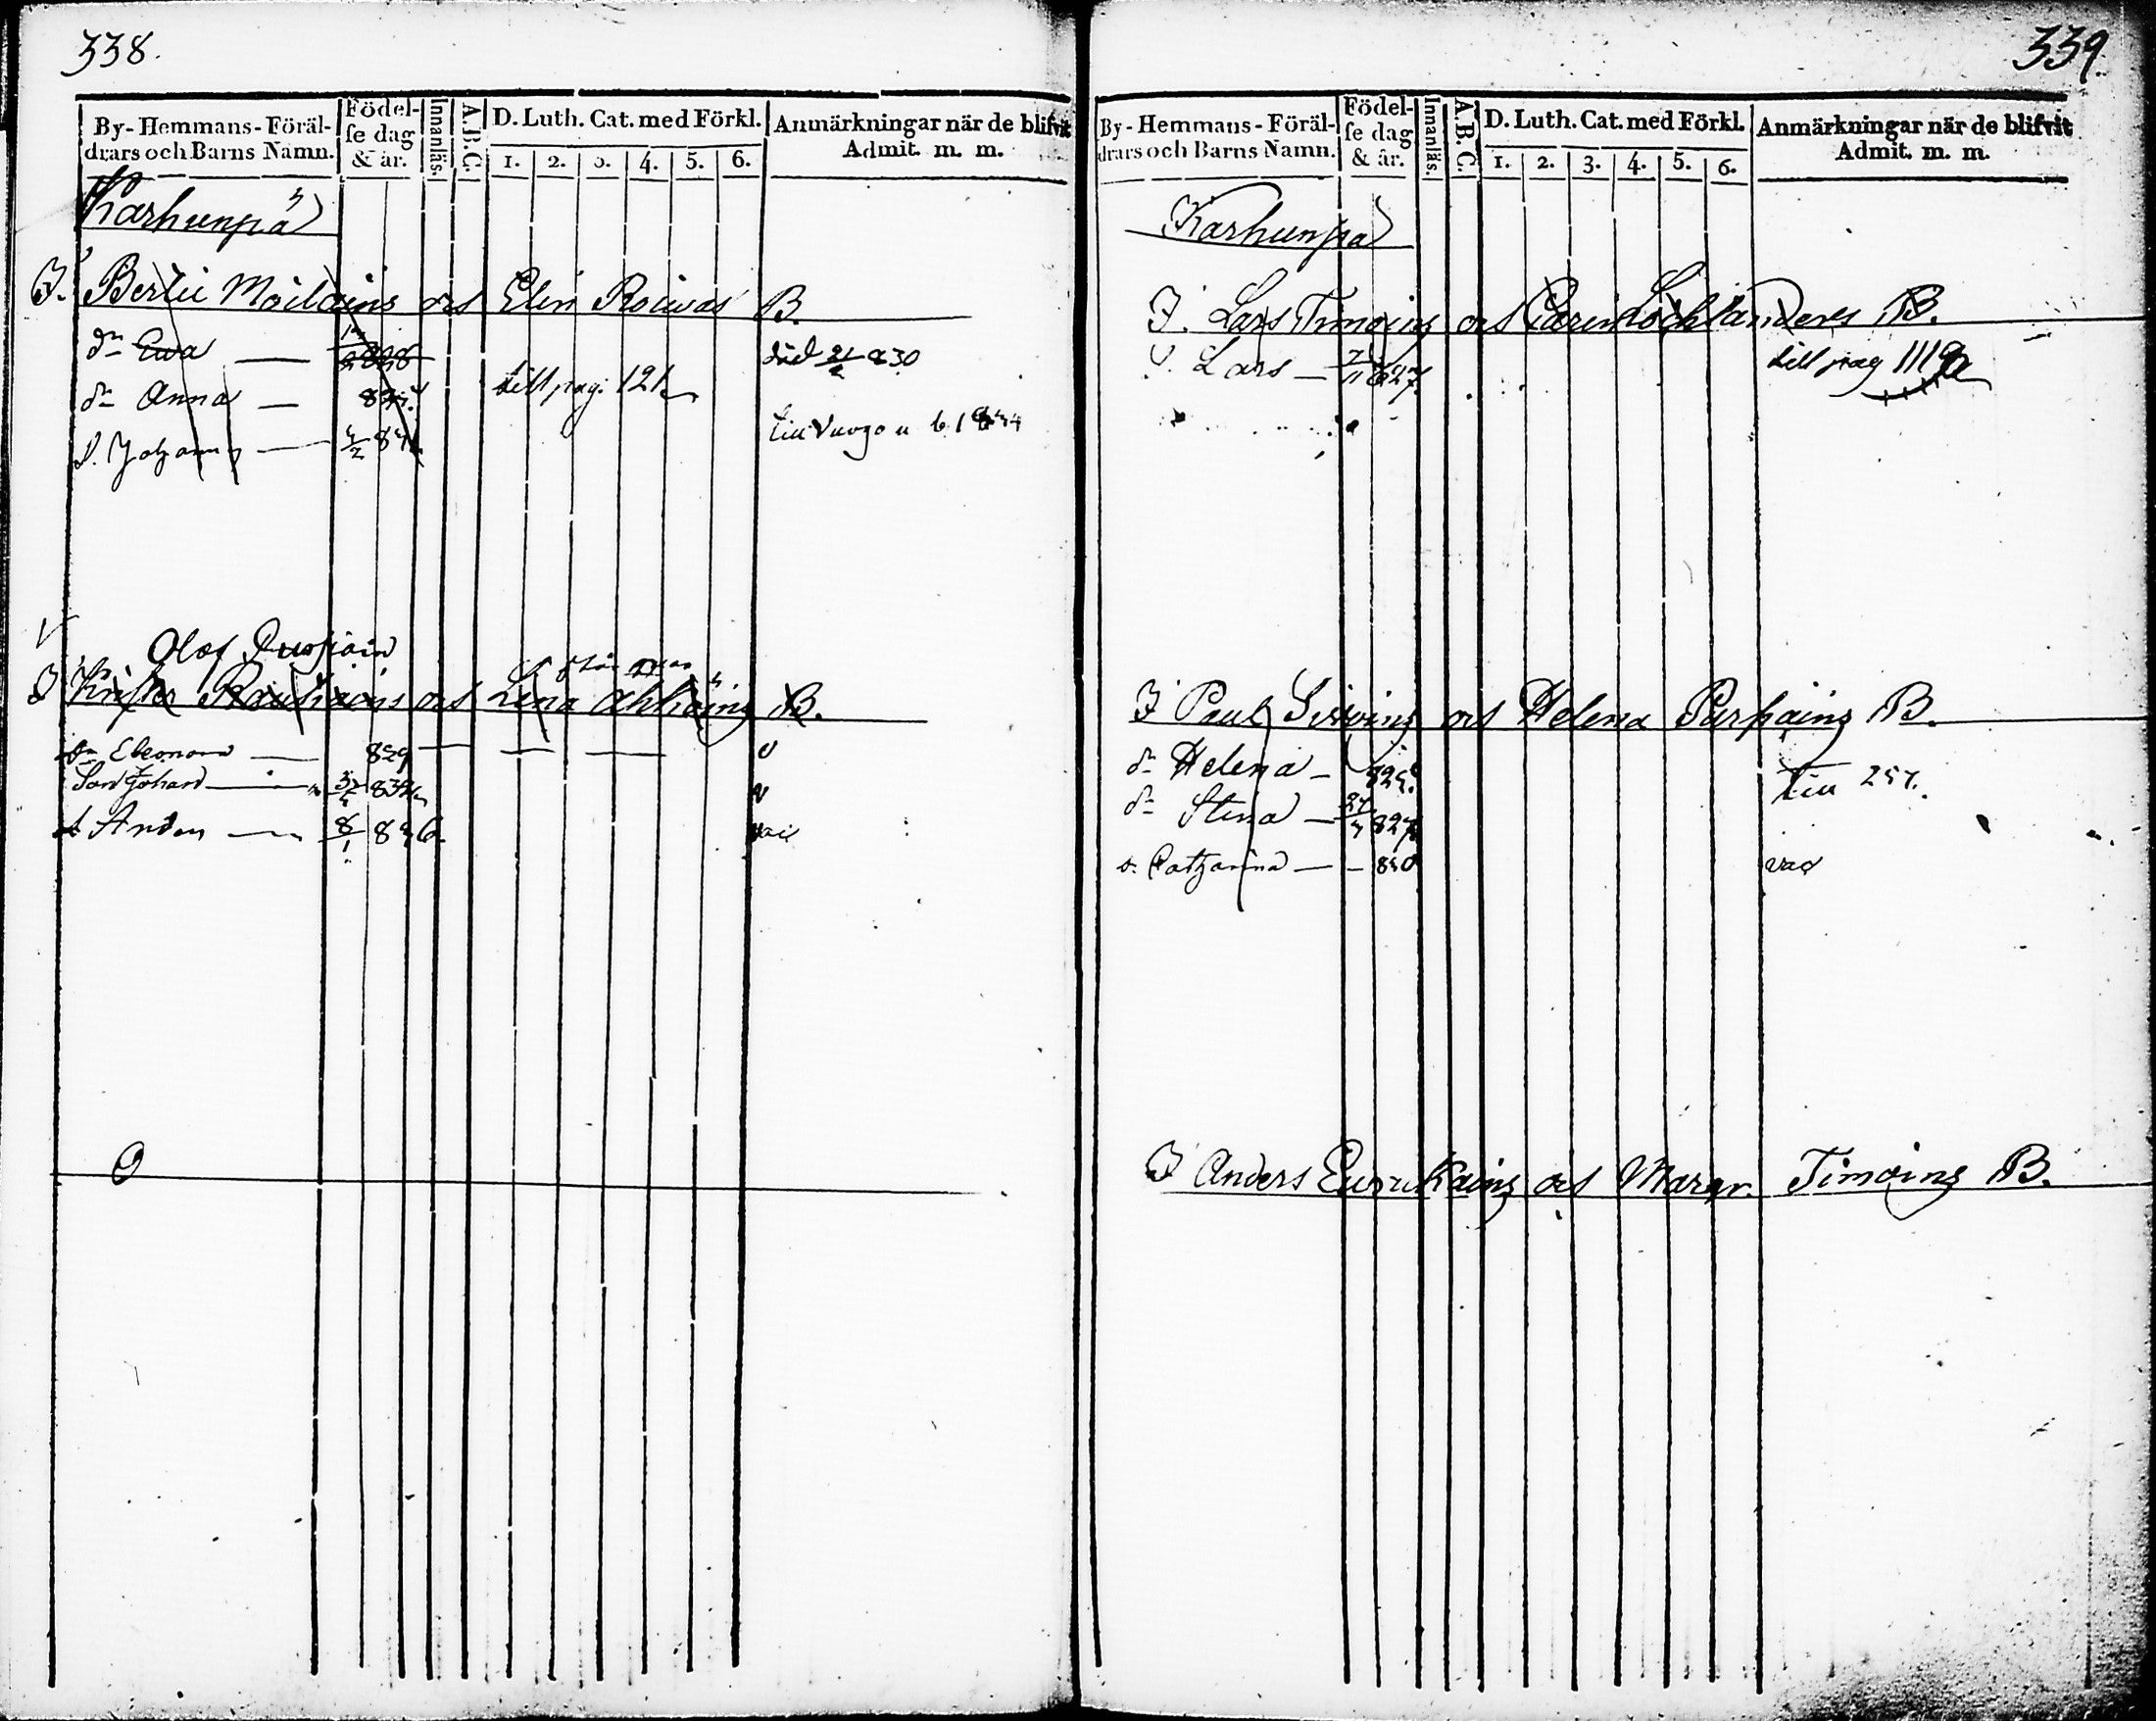 338.
By-Hemmans-Föräl-
drars och Barns Namn.
Födel-
se dag
& år.
Innanläs.
A.B.C.
D. Luth. Cat. med Förkl.
1. 2. 3. 4. 5. 6.
Anmärkningar när de blifvit
Admit. m. m.
Karhunpä
I. Bertil Moilains och Elin Roivas B.
dr Ewa 828 död 21/2 830
dr Anna till pag. 121
S. Johann 4/2 till 1844
Olof
I Krister och Lena B.
dr Eleonora 829 v
Son Johan 832 v
S Anders 8/1 836
0
339.
By-Hemmans-Föräl-
drars och Barns Namn.
Födel-
se dag
& år.
Innanläs.
A.B.C.
D. Luth. Cat. med Förkl.
1. 2. 3. 4. 5. 6.
Anmärkningar när de blifvit
Admit. m. m.
Karhunpä
I. Lars Timoins och Carin Lochlanders B.
S. Lars 7/11 827. till pag 1119
I Paul Sirvins och Helena Purpains B.
dr Helena 825. till 257.
dr Stina 827
dr Catharina 830 vac
I Anders Eurukains och Margr. Timoins B.